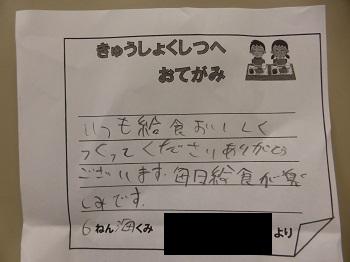 きゅうしょくしつへ
おてがみ
いつも給食おいしく
つくってくださりありがとう
ございます.毎日給食が楽
しみです.
6ねん海くみ
より